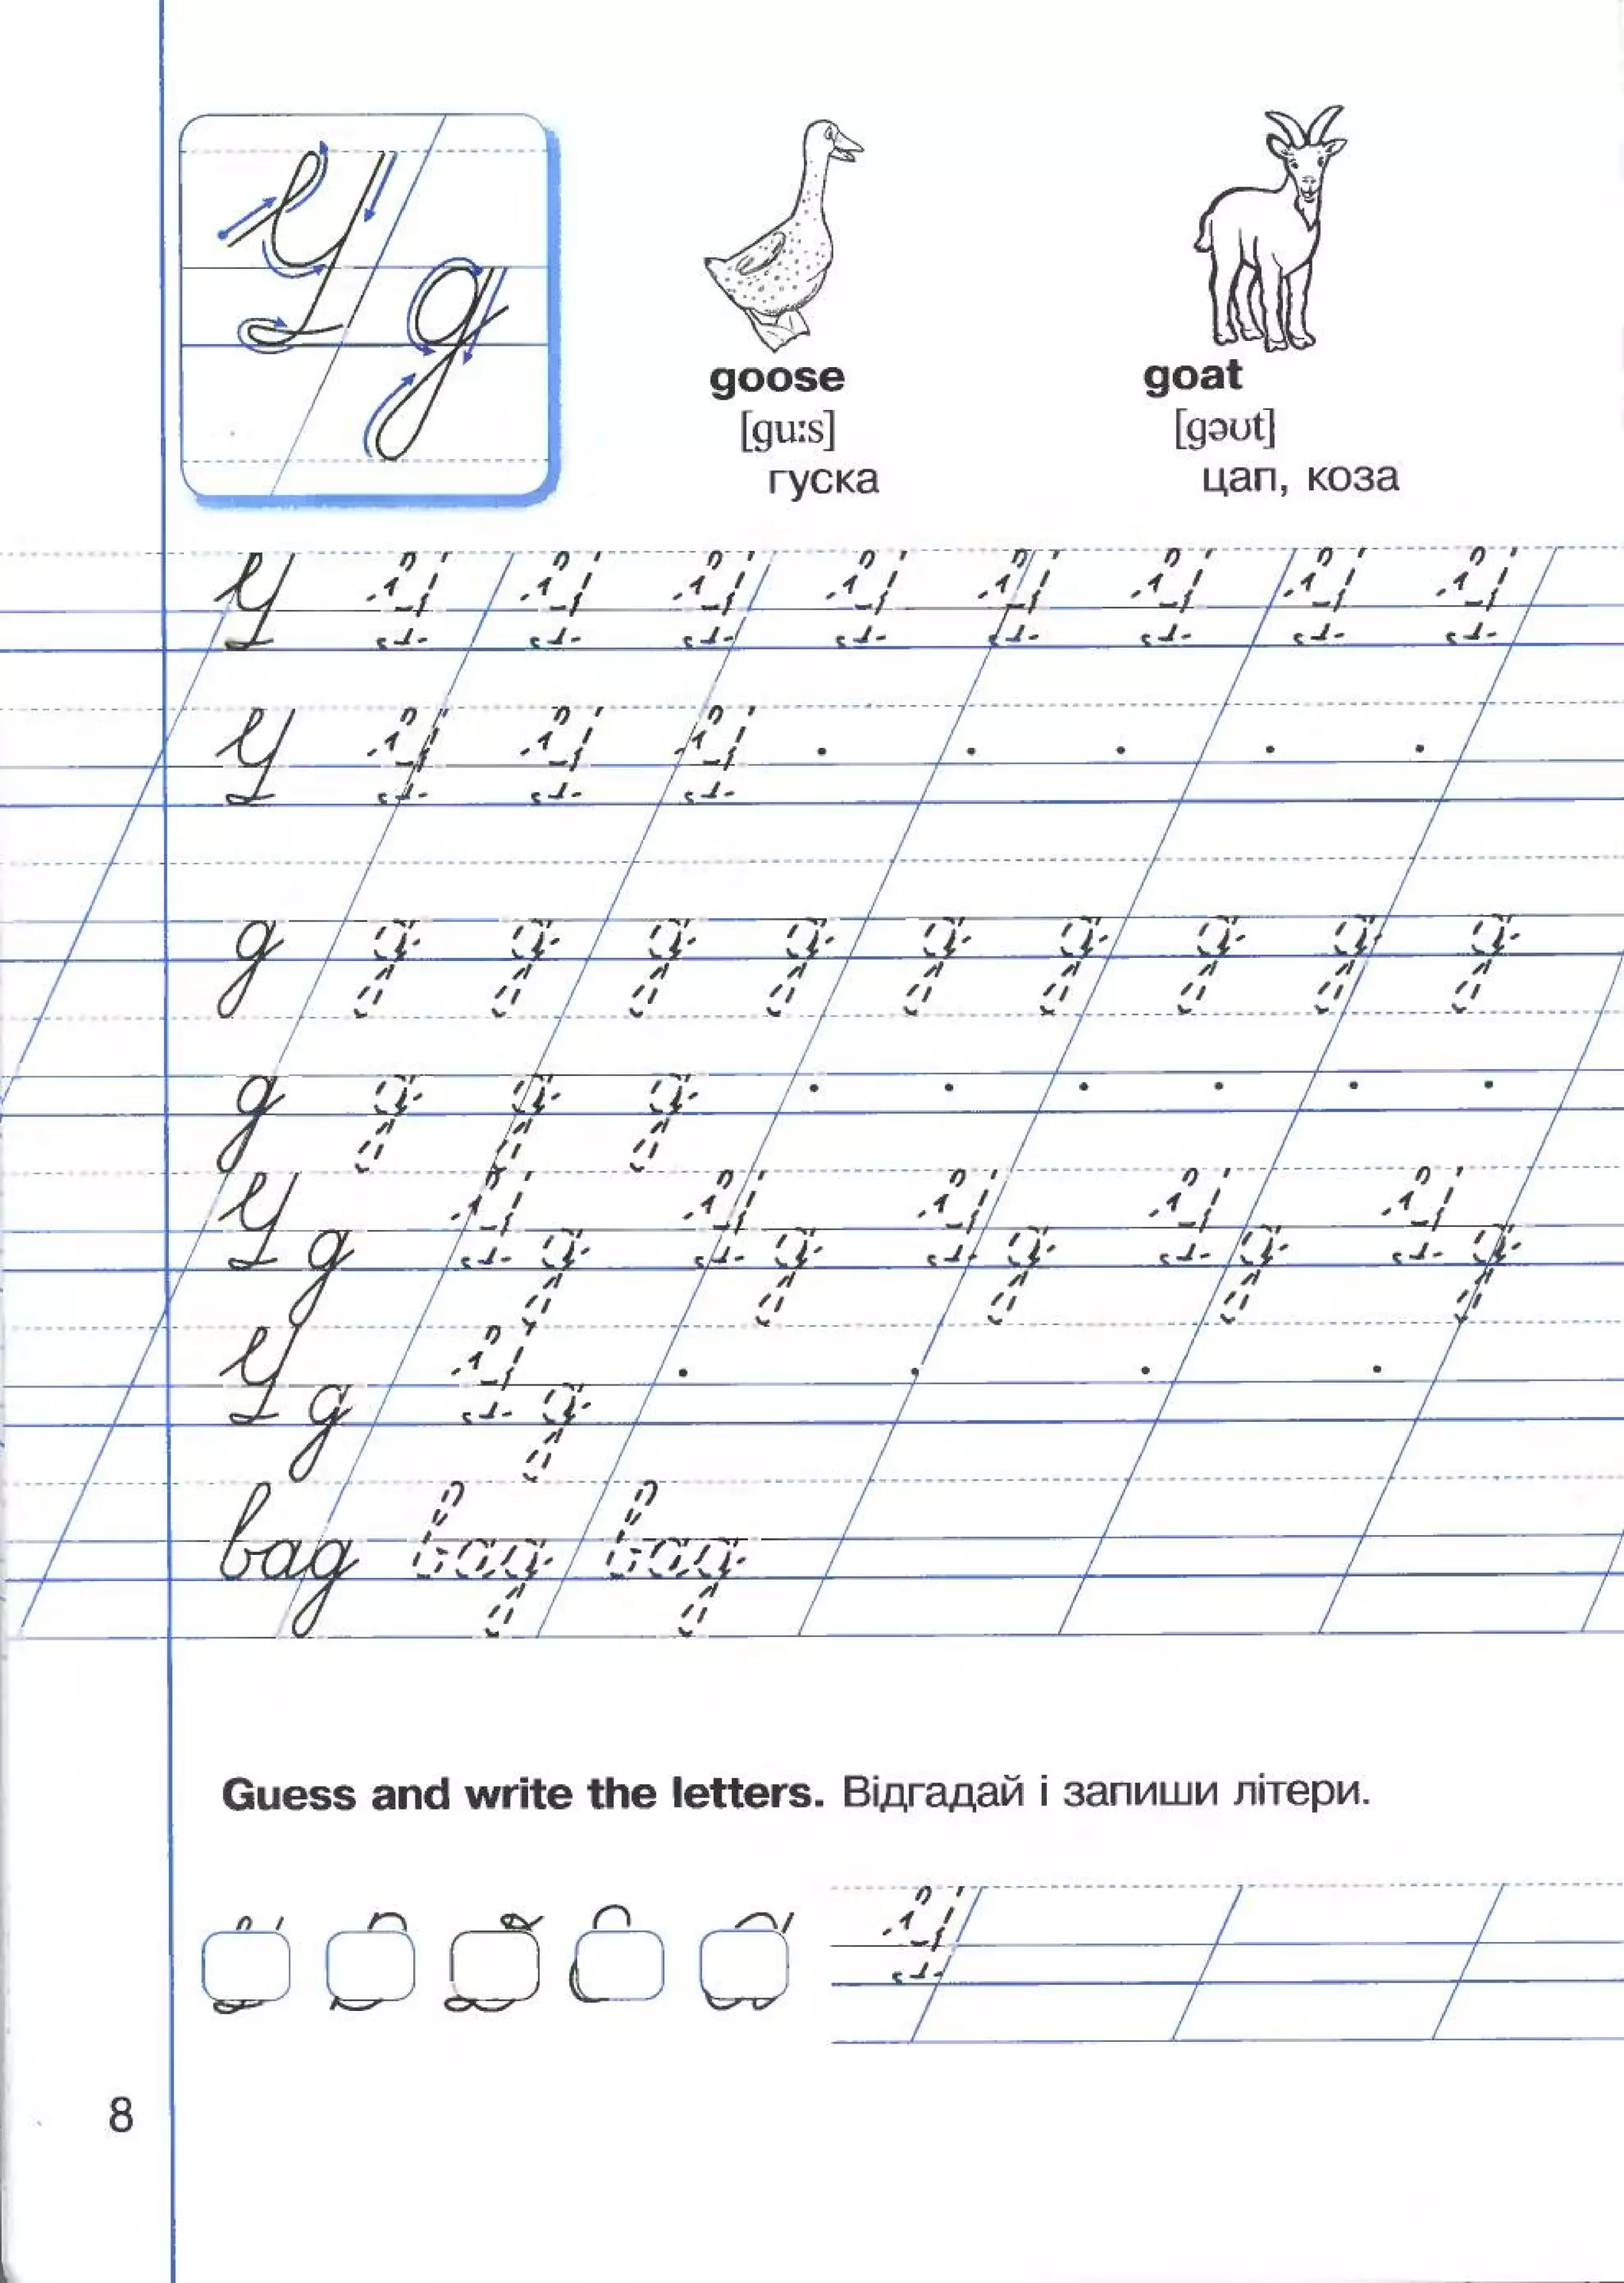 G g
goose goat
[guːs] [gəʊt]
гуска цап, коза
G G G G G G G G G
G G G G
g g g g g g g g g g
g g g g
G g G g G g G g G g G g
G g G g
bag bag bag
Guess and write the letters. Відгадай і запиши літери.
G
8